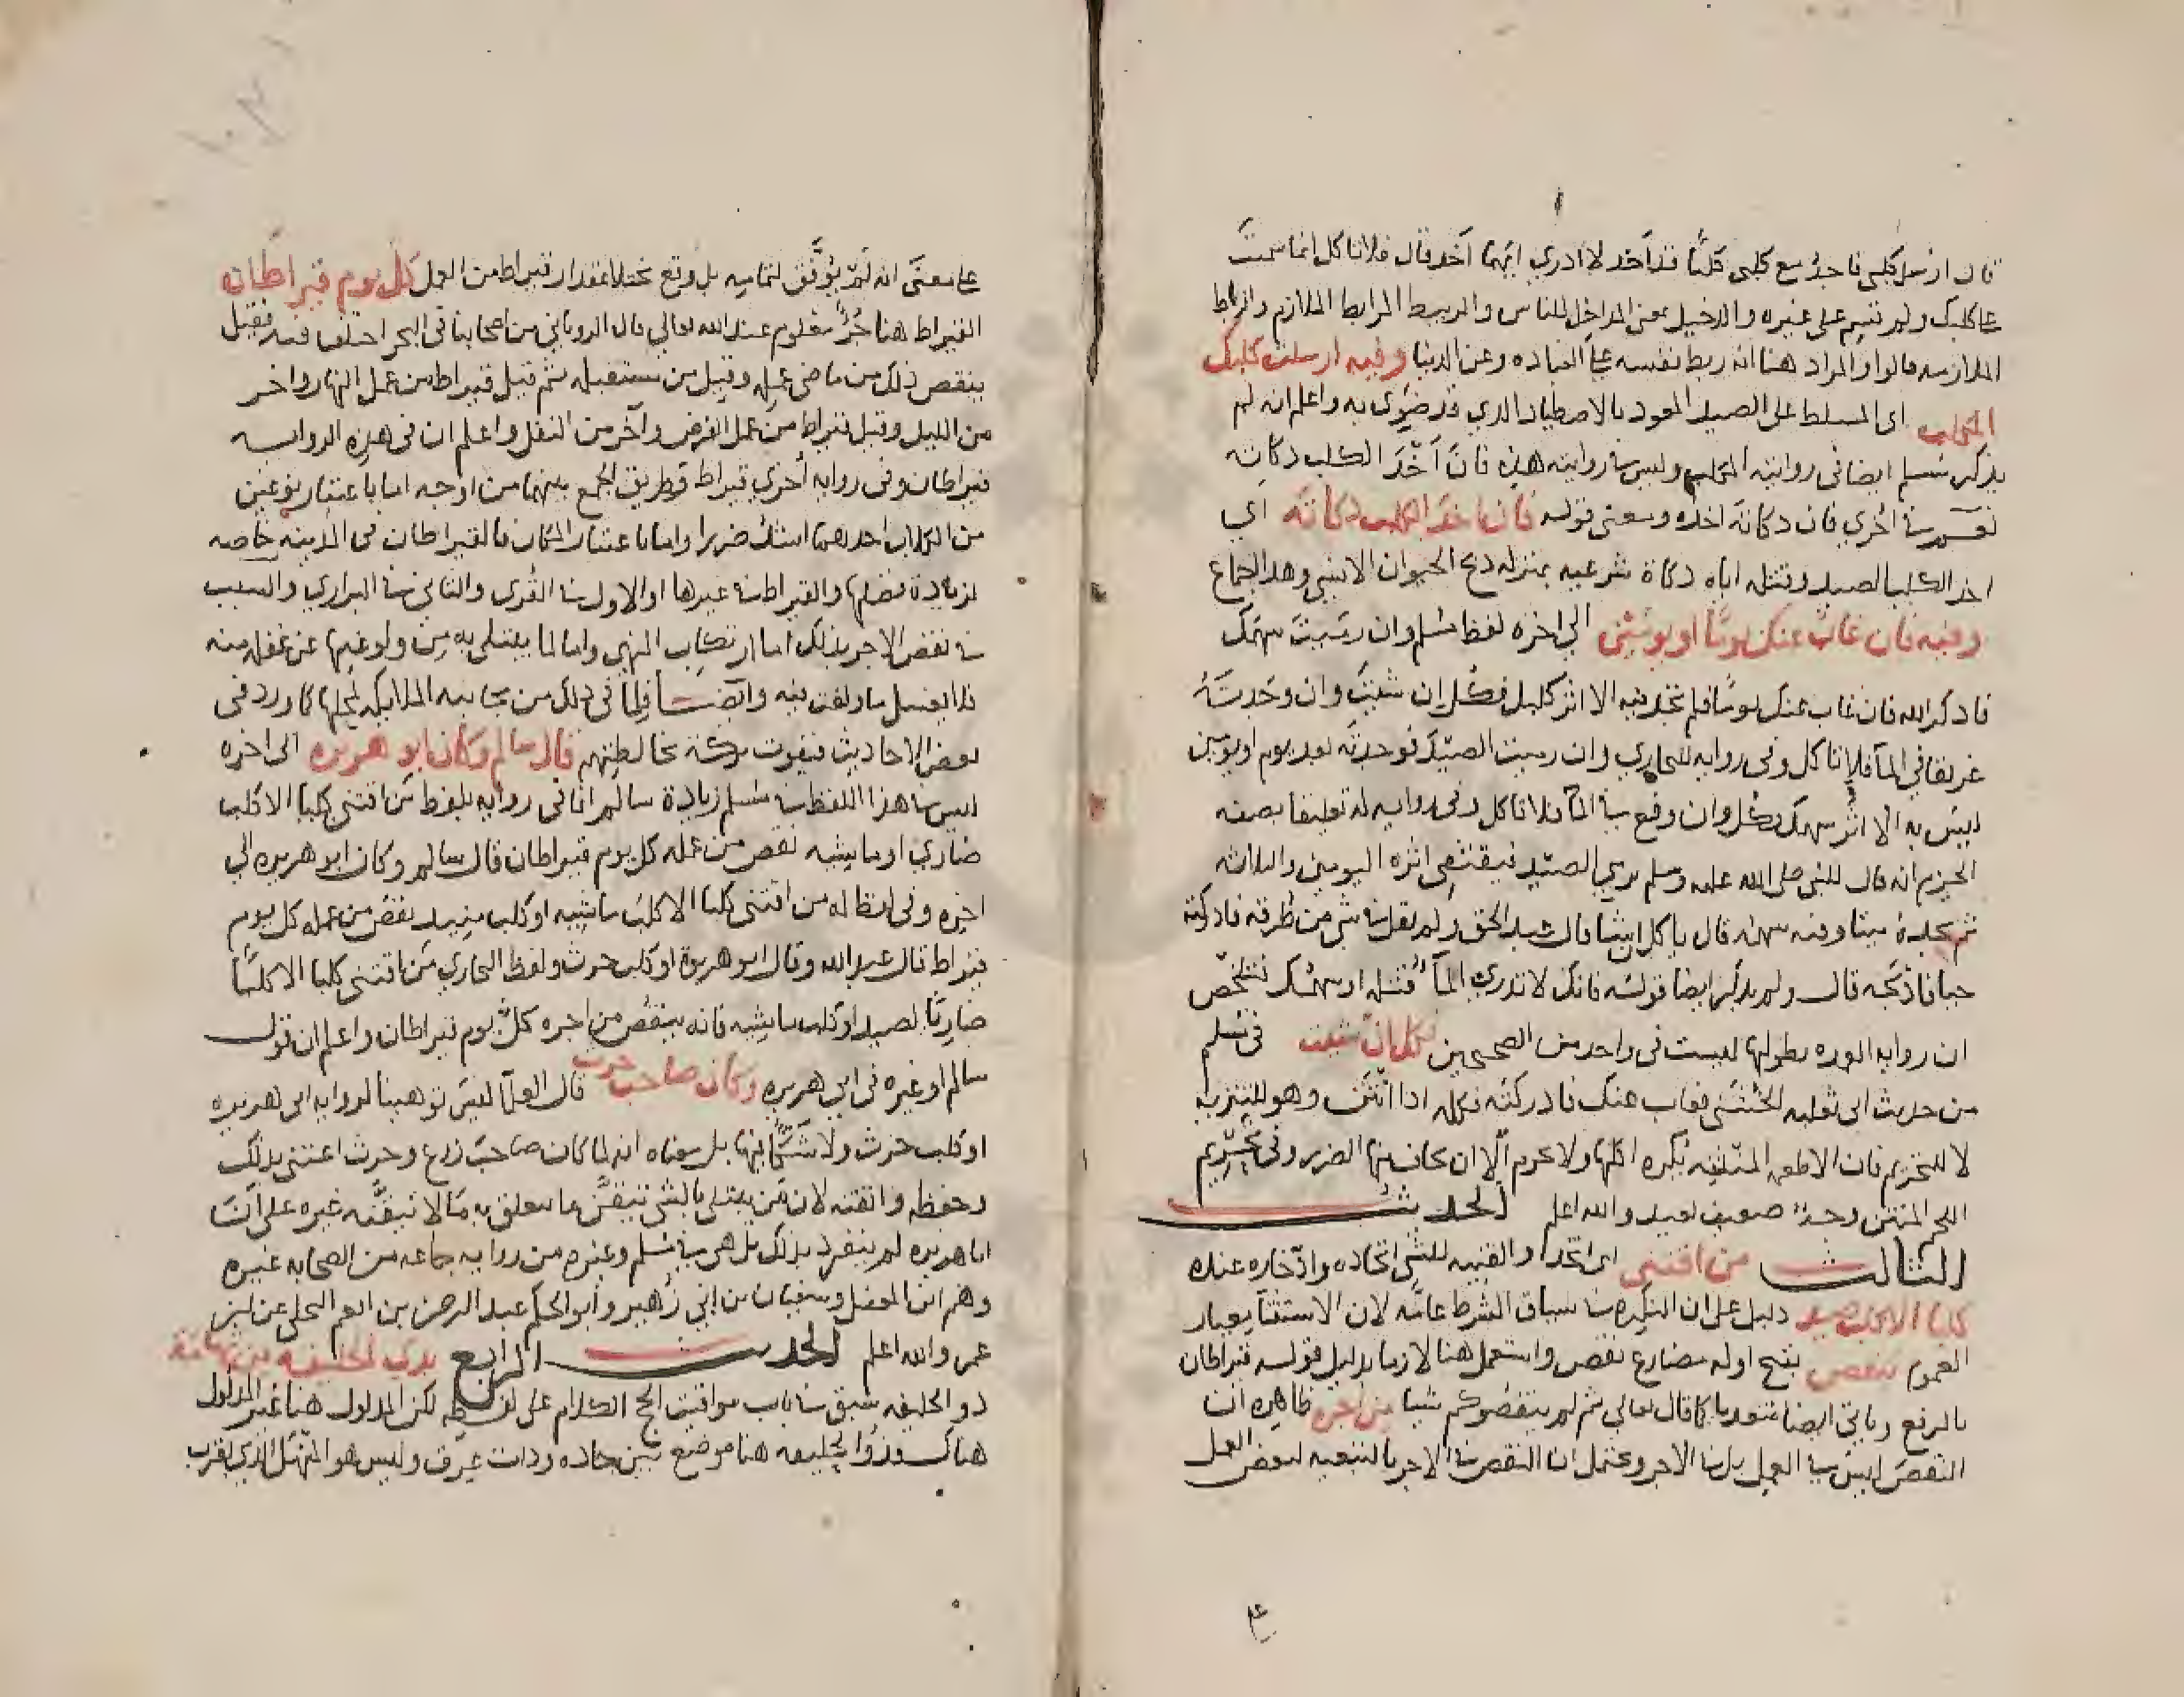 قال ارسل كلبي فاجد مع كلبي كلبًا قد اخذ لا ادري ايهما اخذ قال فلا تاكل انما سميت
على كلبك ولم تسم على غيره والدخيل بمعنى المداخل للناس والربيط المرابط الملازم والرباط
الملازمه قالوا والمراد هنا انه ربط نفسه على العباده وعن الدنيا وفيه ارسلت كلبك
المكلب اى المسلط على الصيد المعود بالاصطياد الذي قد ضري به واعلم انه لم
يذكر مسلم ايضا في روايته المكلب وليس في روايته هذه فان اَخْذَ الكلب ذكاته
نعم في اخري فان ذكاته اخذه ومعنى قوله فان اخذ الكلب ذكاته اي
اخذ الكلب الصيد وقتله اياه ذكاة شرعيه بمنزله ذبح الحيوان الانسي وهذا اجماع
وفيه فان غاب عنك يومًا او يومين الى اخره لفظ مسلم وان رميت سهمك
فاذكر الله فان غاب عنك يومًا فلم تجد فيه الا اثر كلبك فكل ان شئت وان وجدته
غريقا في الماء فلا تاكل وفي روايه للبخاري وان رميت الصيد فوجدته بعد يوم او يومين
ليس به الا اثر سهمك فكل وان وقع في الماء فلا تاكل وفي روايه له تعليقا بصيغه
الجزم انه قال للنبي صلى الله عليه وسلم يرمي الصيد فيقتفي اثره اليومين والثلاثه
ثم يجده ميتا وفيه سهمه قال ياكل ان شا قال عبد الحق ولم يقل في شي من طرقه فادركته
حيا فاذبحه قال ولم يذكر ايضا قوله فانك لا تدري الماء قتله او سهمك فتلخص
ان روايه العمده بطولها ليست في واحد من الصحيحين فكل ان شئت في مسلم
من حديث ابى ثعلبه الخشني فغاب عنك فادركته فكله اذا انتن وهو للتنزيه
لا للتحريم فان الاطعمه المنتنه يكره اكلها ولا يحرم الا ان يخاف منها الضرر وفي تحريم
اللحم المنتن وجه ضعيف بعيد والله اعلم الحديث
الثالث من اقتنى اى اتخذ والقنيه للشي اتخاذه وادخاره عنده
كلبا الا كلب صيد دليل على ان النكره في سياق الشرط عامه لان الاستثنا معيار
العموم ينقص بفتح اوله مضارع نقص واستعمل هنا لازما بدليل قوله قيراطان
بالرفع وياتي ايضا متعديا كما قال تعالي ثم لم ينقصوكم شيا من اجره ظاهره ان
النقص ليس في العمل بل في الاجر ويحتمل ان النقص في الاجر بالتبعيه لبعض العمل
على معنى انه لم يوفق لتمامه بل وقع مختلا مقدار قيراط من العمل كل يوم قيراطان
القيراط هنا جزء معلوم عند الله تعالي قال الروياني من اصحابنا في البحر اختلف فيه فقيل
ينقص ذلك من ماضي عمله وقيل من مستقبله ثم قيل قيراط من عمل النهار واخر
من الليل وقيل قيراط من عمل الفرض وآخر من النفل واعلم ان في هذه الروايه
قيراطان وفي روايه أخري قيراط وطريق الجمع بينهما من اوجه اما باعتبار نوعين
من الكلاب احدهما اشد ضررا واما باعتبار المكان فالقيراطان في المدينه خاصه
لزيادة فضلها والقيراط في غيرها او الاول في القرى والثاني في البراري والسبب
في نقص الاجر بذلك اما ارتكاب المنهي واما لما يبتلي به من ولوغها عن غفله منه
فلا يغسل ما ولغت فيه وايضا فلما في ذلك من مجانبه الملايكه لمحلها كما ورد في
بعض الاحاديث فيفوت بركة مخالطتهم قال سالم وكان ابو هريره الى اخره
ليس هذا اللفظ في مسلم زيادة سالم انما في روايه بلفظ من اقتنى كلبا الا كلب
ضاري او ماشيه نقص من عمله كل يوم قيراطان قال سالم وكان ابو هريره الي
اخره وفي لفظ له من اقتنى كلبا الا كلب ماشيه او كلب صيد نقص من عمله كل يوم
قيراط قال عبد الله وقال ابو هريرة او كلب حرث ولفظ البخاري من اقتنى كلبا الا كلبًا
ضاريًا لصيد او كلب ماشيه فانه ينقص من اجره كل يوم قيراطان واعلم ان قول
سالم او غيره في ابي هريره وكان صاحب حرث قال العلماء ليس توهينا لروايه ابى هريره
او كلب حرث ولا شكًّا فيها بل معناه انه لما كان صاحب زرع وحرث اعتنى بذلك
وحفظه واتقنه لان من يبتلى بالشي يتيقن ما يتعلق به ما لا يتيقنه غيره على ان
ابا هريره لم ينفرد بذلك بل هي في مسلم وغيره من روايه جماعه من الصحابه غيره
وهم ابن المغفل وسفيان بن ابي زهير وأبو الحكم عبد الرحمن بن ابي نعم البجلي عن ابن
عمر والله اعلم الحديث الرابع بذي الحليفه من تهامة
ذو الحليفه سبق في باب مواقيت الحج الكلام على لفظه لكن المدلول هنا غير المدلول
هناك وذو الحليفه هنا موضع بين حاده وذات عرق وليس هو المهل الذي بقرب